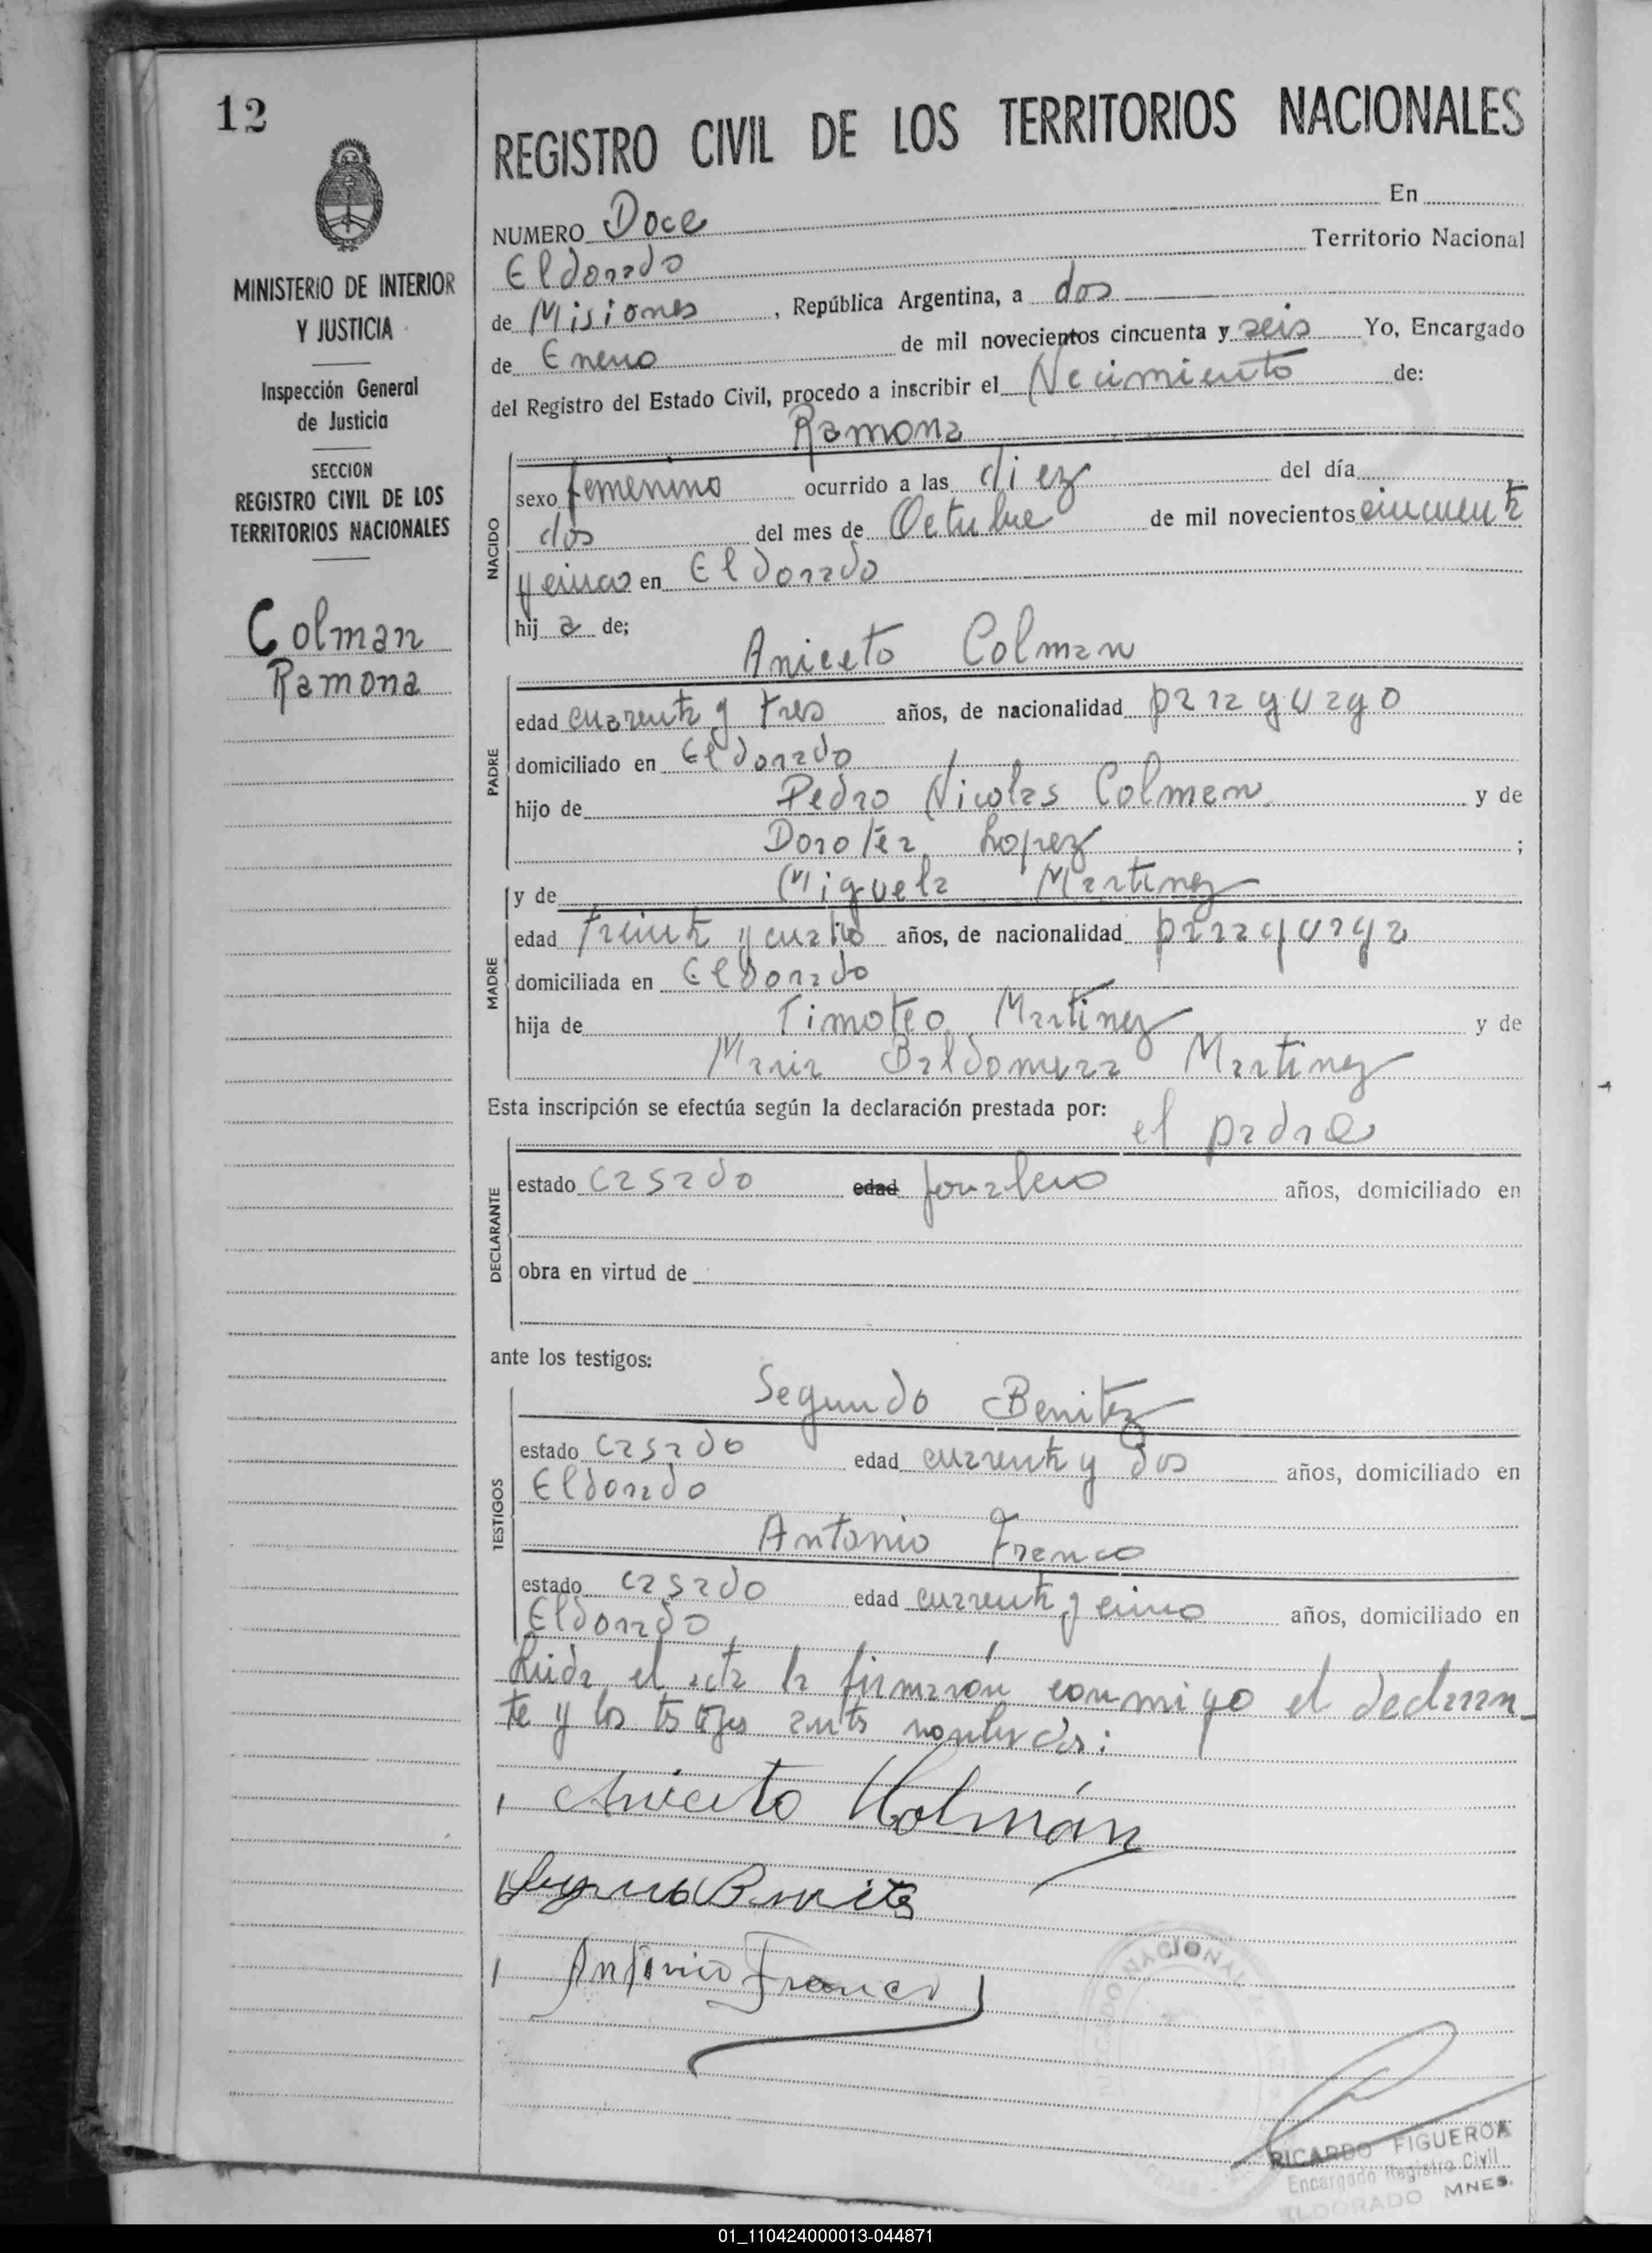 12
MINISTERIO DE INTERIOR
Y JUSTICIA
Inspección General
de Justicia
SECCION
REGISTRO CIVIL DE LOS
TERRITORIOS NACIONALES
Colman
Ramona
REGISTRO CIVIL DE LOS TERRITORIOS NACIONALES
NUMERO Doce En
Eldorado Territorio Nacional
de Misiones, República Argentina, a dos
de Enero de mil novecientos cincuenta y seis Yo, Encargado
del Registro del Estado Civil, procedo a inscribir el Necimiento de:
Ramona
NACIDO
sexo femenino ocurrido a las diez del día
dos del mes de Octubre de mil novecientos cincuenta
y cinco en Eldorado
hij a de;
Aniceto Colman
PADRE
edad cuarenta y tres años, de nacionalidad paraguayo
domiciliado en Eldorado
hijo de Pedro Nicolas Colman y de
Dorotea Lopez ;
y de Miguela Martinez
MADRE
edad treinta y cuatro años, de nacionalidad paraguaya
domiciliada en Eldorado
hija de Timoteo Martinez y de
Maria Baldomera Martinez
Esta inscripción se efectúa según la declaración prestada por:
el padre
DECLARANTE
estado casado edad jornalero años, domiciliado en
obra en virtud de
ante los testigos:
Segundo Benitez
TESTIGOS
estado casado edad cuarenta y dos años, domiciliado en
Eldorado
Antonio Franco
estado casado edad cuarenta y cinco años, domiciliado en
Eldorado
Leida el acta la firmarón conmigo el declaran-
te y los testigos antes nombrados:
Aniceto Colmán
Segundo Benitez
Antonio Franco
NACIONAL
RICARDO FIGUEROA
Encargado Registro Civil
ELDORADO MNES.
01_110424000013-044871